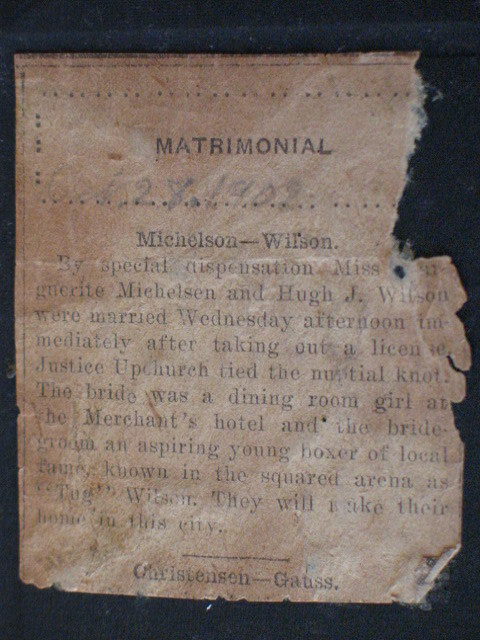 MATRIMONIAL
Oct 27, 1909
Michelson—Wilson.
By special dispensation Miss
guerite Michelsen and Hugh J. Wilson
were married Wednesday afternoon im-
mediately after taking out a license,
Justice Upchurch tied the nuptial knot.
The bride was a dining room girl at
the Merchant's hotel and the bride-
groom an aspiring young boxer of local
fame, known in the squared arena as
"Tug" Wilson. They will make their
home in this city.
Christensen—Gauss.